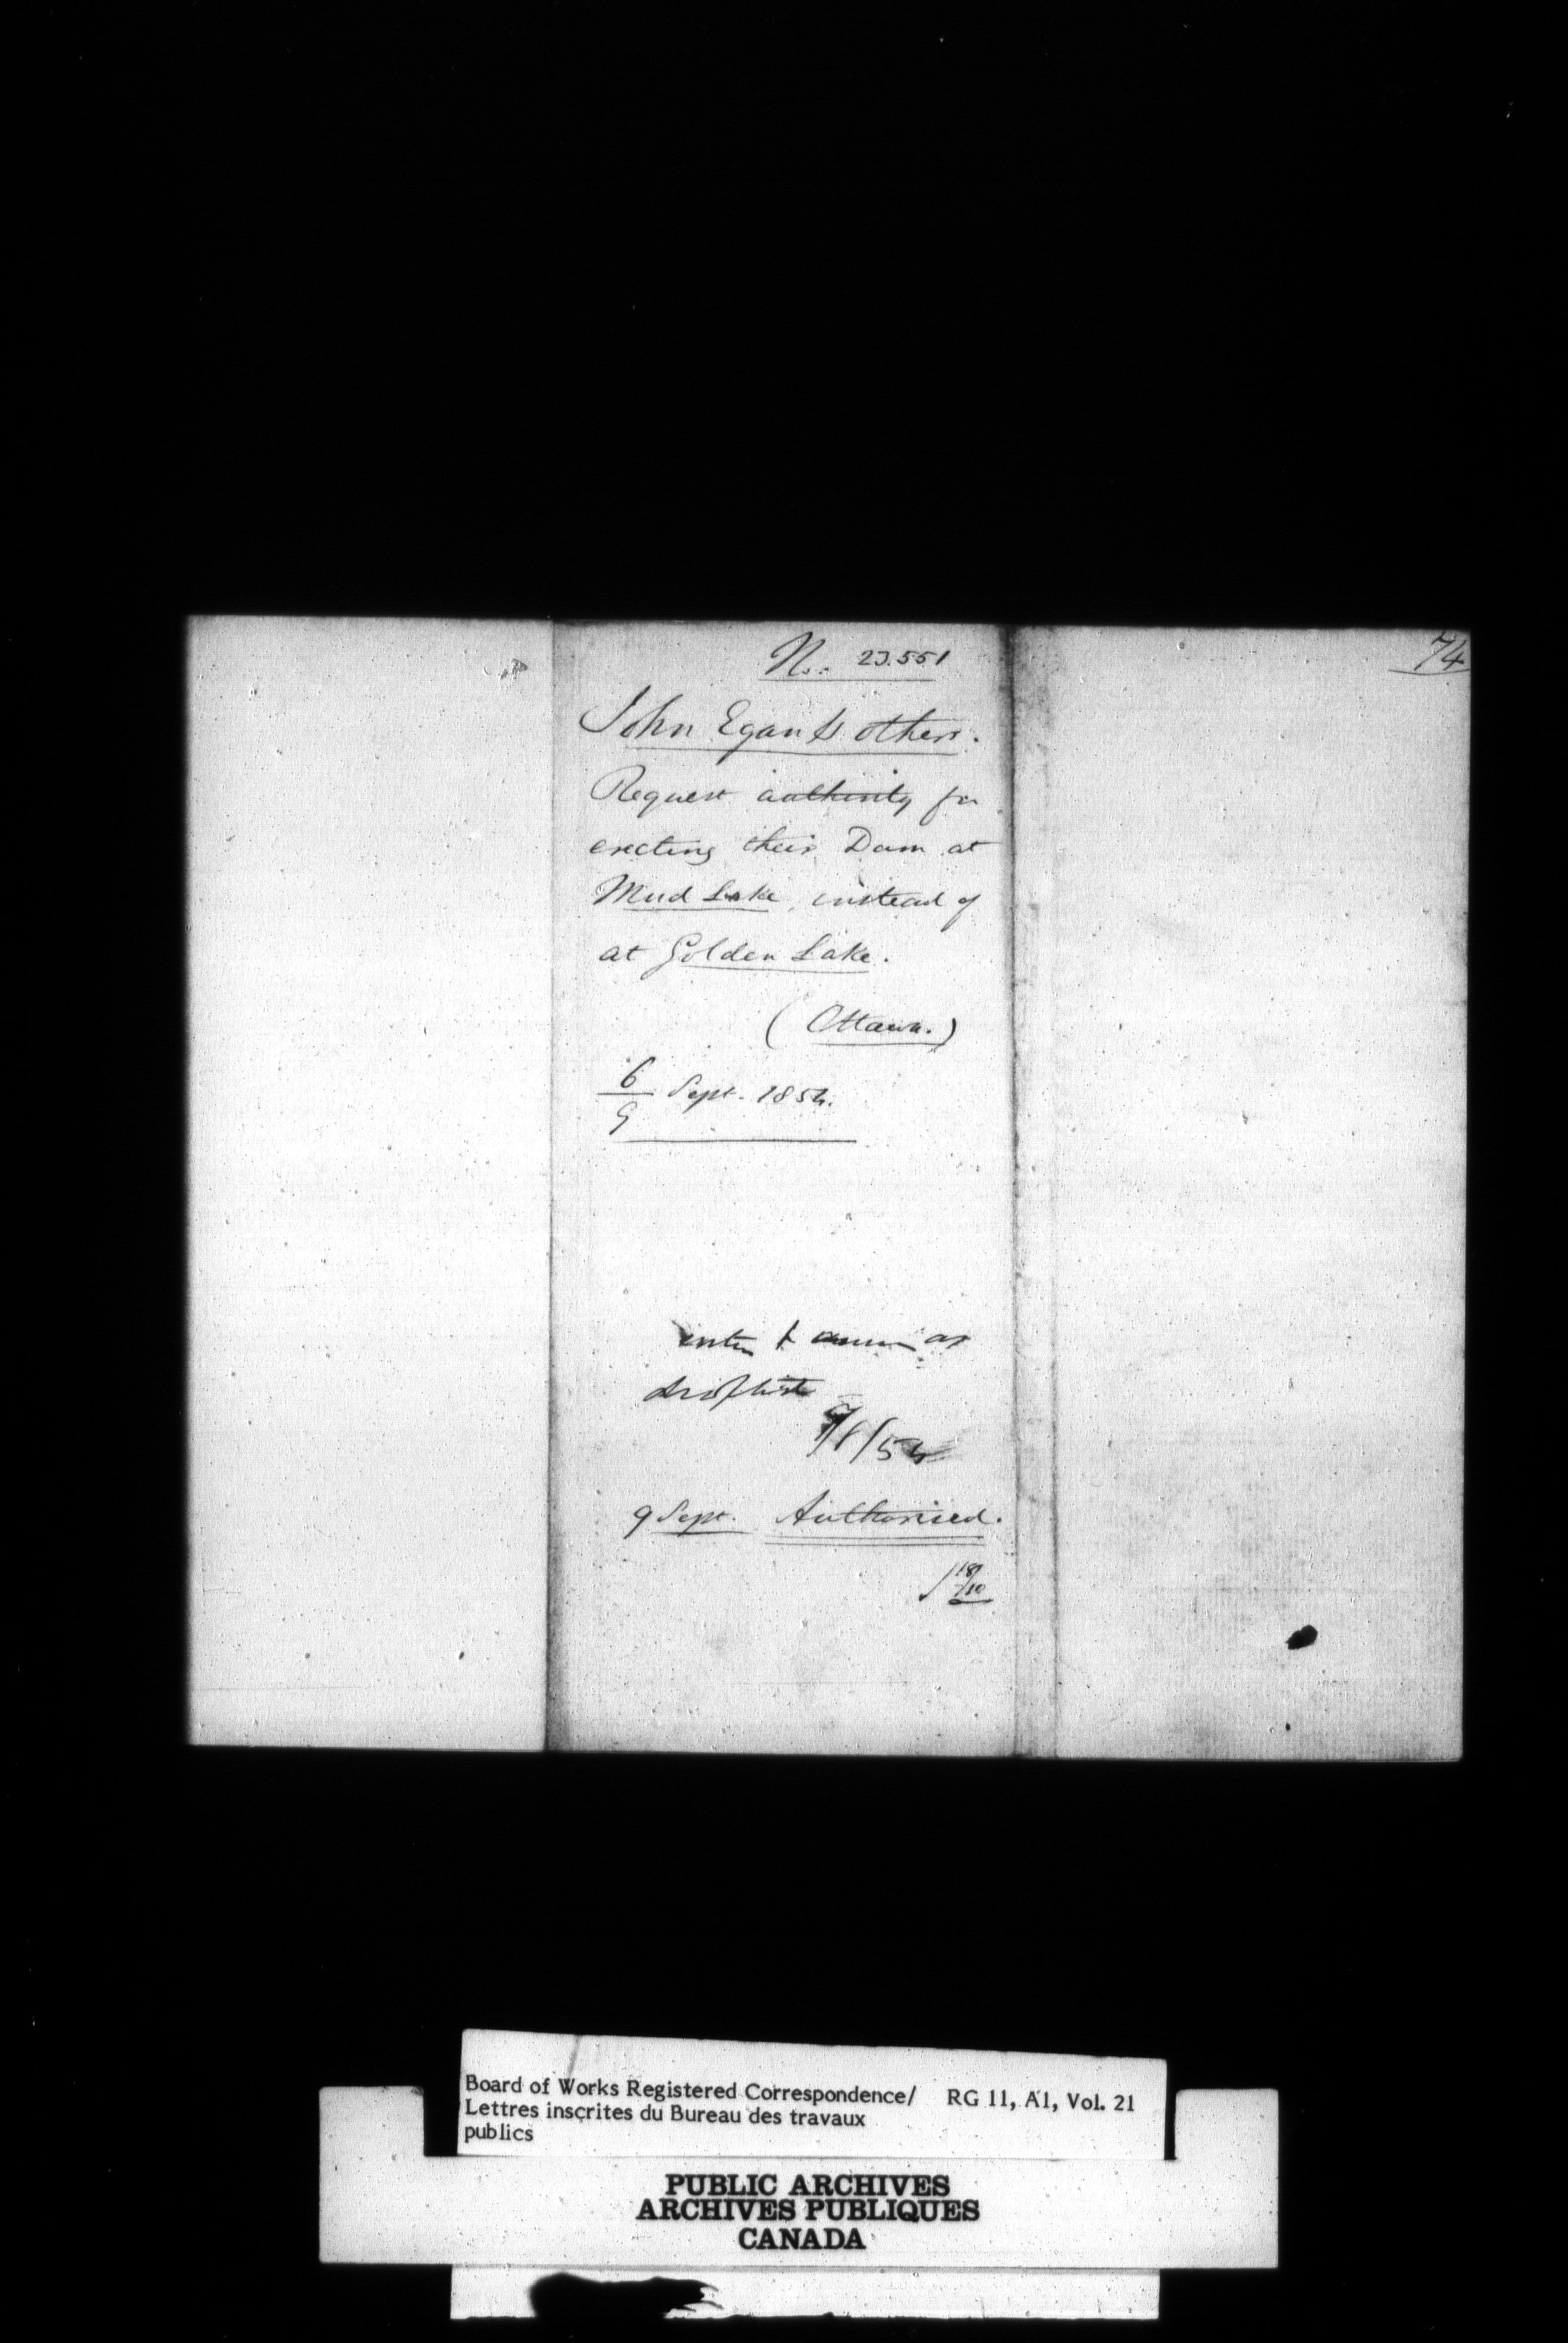 74
No. 23.551
John Egan & others.
Request authority for
erecting their Dam at
Mud Lake, instead of
at Golden Lake.
(Ottawa.)
6/9 Sept. 1854.
enter & as
9 Sept. Authorised.
18/10
Board of Works Registered Correspondence/ RG 11, A1, Vol. 21
Lettres inscrites du Bureau des travaux
publics
PUBLIC ARCHIVES
ARCHIVES PUBLIQUES
CANADA